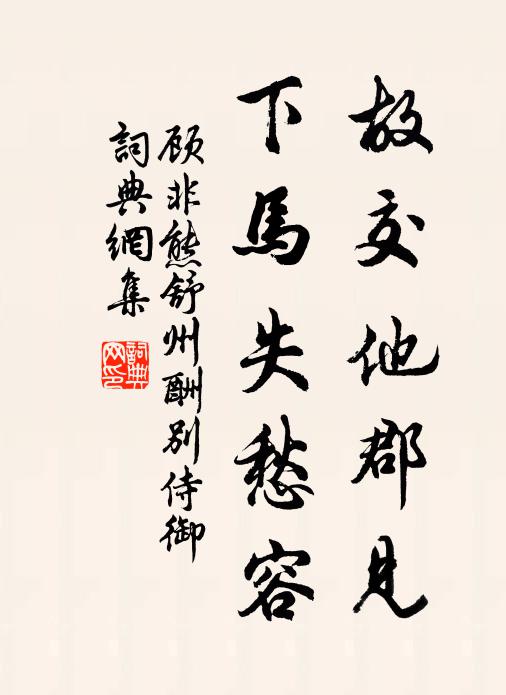 故交他郡見
下馬失愁容
顾非熊舒州酬別侍御
詞典網集
詞典网印